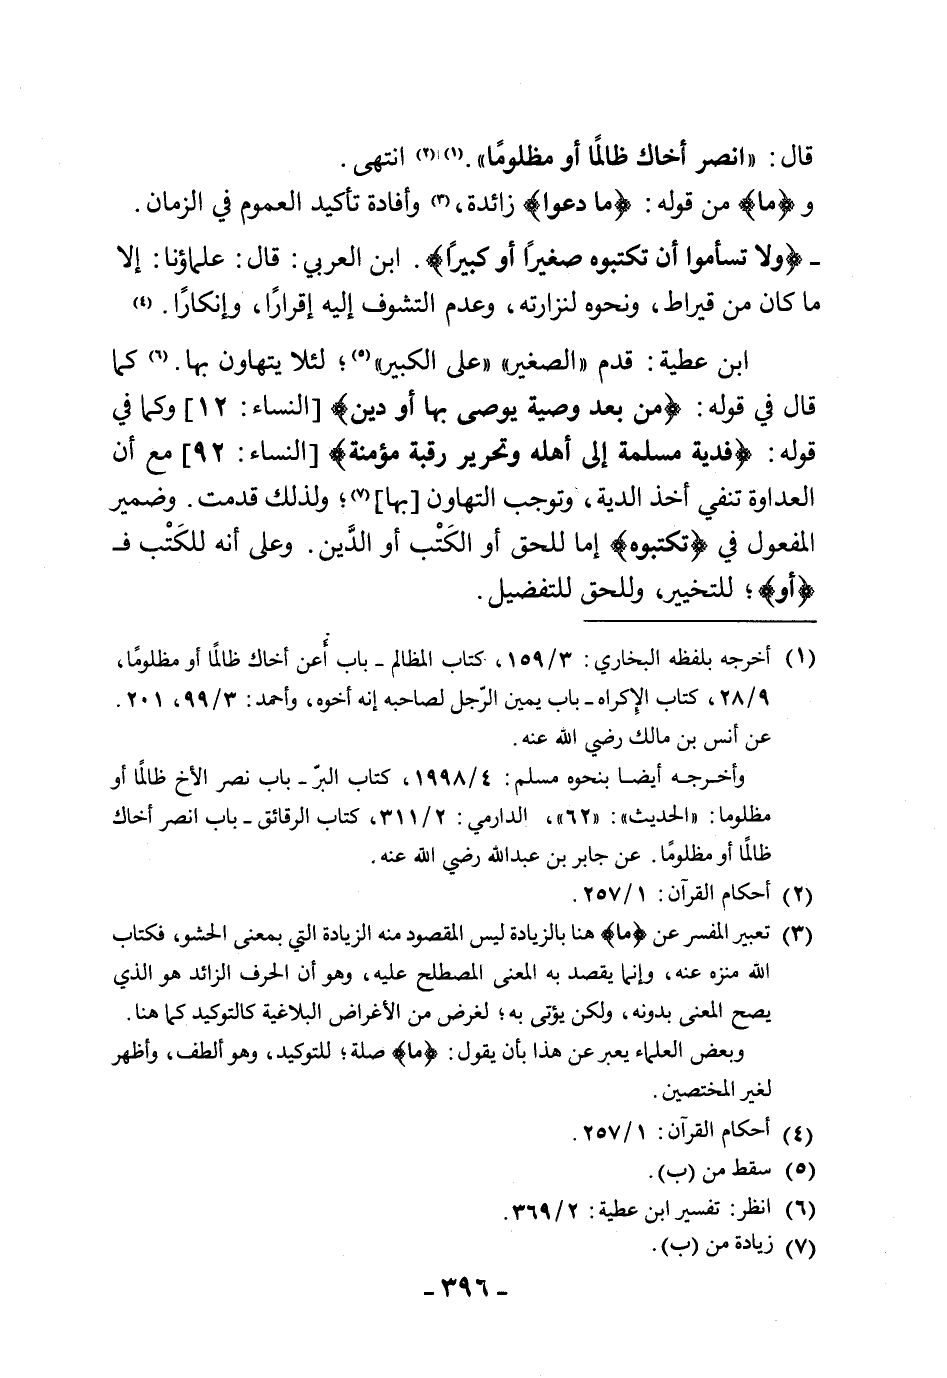 قال: «انصر أخاك ظالمًا أو مظلومًا».(١)،(٢) انتهى.
و ﴿ما﴾ من قوله: ﴿ما دعوا﴾ زائدة،(٣) وأفادة تأكيد العموم في الزمان.
ـ ﴿ولا تسأموا أن تكتبوه صغيراً أو كبيراً﴾. ابن العربي: قال: علماؤنا: إلا
ما كان من قيراط، ونحوه لنزارته، وعدم التشوف إليه إقرارًا، وإنكارًا.(٤)
ابن عطية: قدم «الصغير» «على الكبير»(٥)؛ لئلا يتهاون بها.(٦) كما
قال في قوله: ﴿من بعد وصية يوصى بها أو دين﴾ [النساء: ١٢] وكما في
قوله: ﴿فدية مسلمة إلى أهله وتحرير رقبة مؤمنة﴾ [النساء: ٩٢] مع أن
العداوة تنفي أخذ الدية، وتوجب التهاون [بها](٧)؛ ولذلك قدمت. وضمير
المفعول في ﴿تكتبوه﴾ إما للحق أو الكَتْب أو الدَّين. وعلى أنه للكَتْب فـ
﴿أو﴾؛ للتخيير، وللحق للتفضيل.
(١) أخرجه بلفظه البخاري: ١٥٩/٣، كتاب المظالم ـ باب أَعن أخاك ظالمًا أو مظلومًا،
٢٨/٩، كتاب الإكراه ـ باب يمين الرّجل لصاحبه إنه أخوه، وأحمد: ٩٩/٣، ٢٠١.
عن أنس بن مالك رضي الله عنه.
وأخرجه أيضا بنحوه مسلم: ١٩٩٨/٤، كتاب البرّ ـ باب نصر الأخ ظالمًا أو
مظلوما: «الحديث»: «٦٢»، الدارمي: ٣١١/٢، كتاب الرقائق ـ باب انصر أخاك
ظالمًا أو مظلومًا. عن جابر بن عبدالله رضي الله عنه.
(٢) أحكام القرآن: ٢٥٧/١.
(٣) تعبير المفسر عن ﴿ما﴾ هنا بالزيادة ليس المقصود منه الزيادة التي بمعنى الحشو، فكتاب
الله منزه عنه، وإنما يقصد به المعنى المصطلح عليه، وهو أن الحرف الزائد هو الذي
يصح المعنى بدونه، ولكن يؤتى به؛ لغرض من الأغراض البلاغية كالتوكيد كما هنا.
وبعض العلماء يعبر عن هذا بأن يقول: ﴿ما﴾ صلة؛ للتوكيد، وهو ألطف، وأظهر
لغير المختصين.
(٤) أحكام القرآن: ٢٥٧/١.
(٥) سقط من (ب).
(٦) انظر: تفسير ابن عطية: ٣٦٩/٢.
(٧) زيادة من (ب).
- ٣٩٦ -